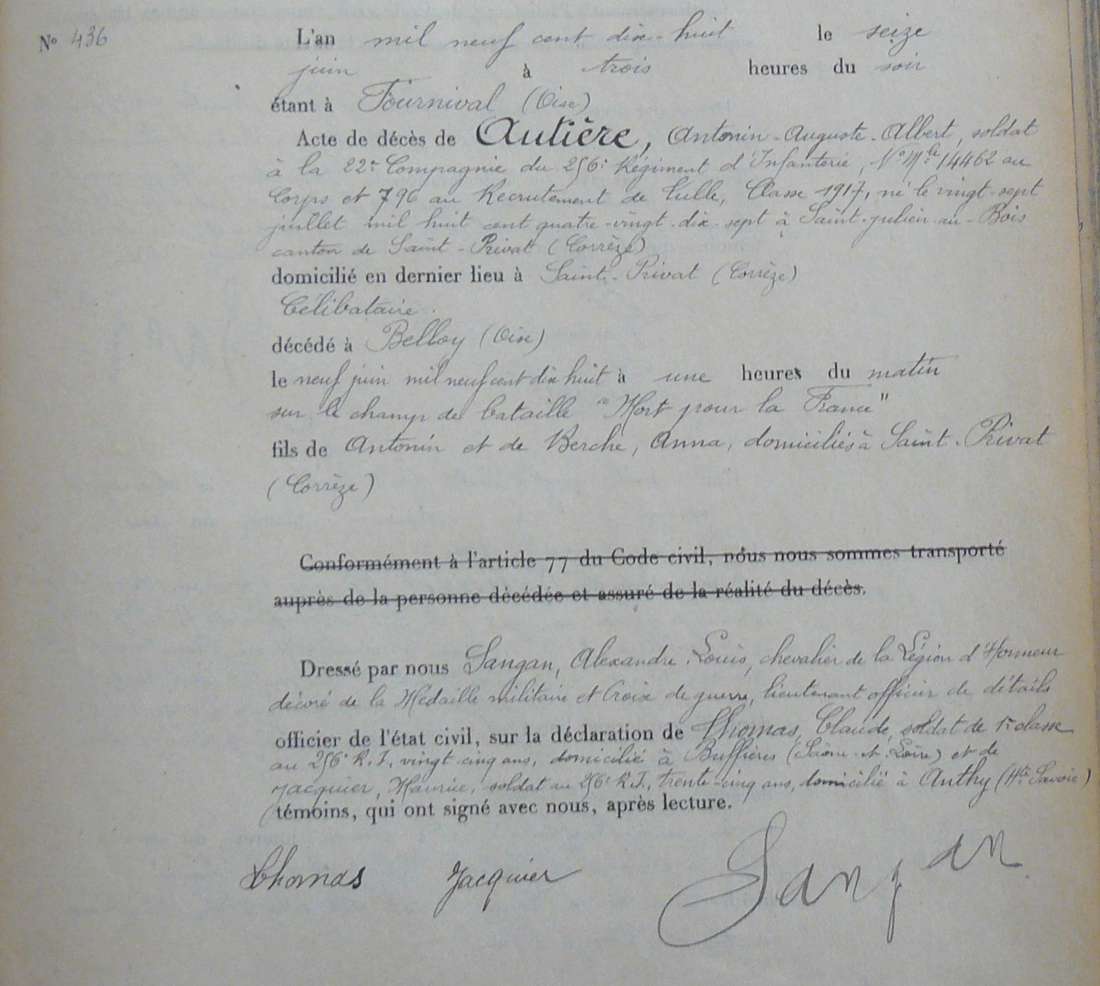 N° 436
L'an mil neuf cent dix-huit le seize
juin à trois heures du soir
étant à Fournival (Oise)
Acte de décès de Autière, Antonin-Auguste-Albert, soldat
à la 22e Compagnie du 256e Régiment d'Infanterie, N° Mle 14462 au
Corps et 796 au Recrutement de Tulle, Classe 1917, né le vingt-sept
juillet mil huit cent quatre-vingt-dix-sept à Saint-julien-au-Bois
canton de Saint-Privat (Corrèze)
domicilié en dernier lieu à Saint-Privat (Corrèze)
Célibataire.
décédé à Belloy (Oise)
le neuf juin mil neuf cent dix huit à une heures du matin
sur le champ de bataille "Mort pour la France"
fils de Antonin et de Berche, Anna, domiciliés à Saint-Privat
(Corrèze)
Conformément à l'article 77 du Code civil, nous nous sommes transporté
auprès de la personne décédée et assuré de la réalité du décès.
Dressé par nous Sangan, Alexandre, Louis, chevalier de la Légion d'Honneur
décoré de la Médaille militaire et Croix de guerre, lieutenant officier de détails
officier de l'état civil, sur la déclaration de Thomas, Claude, soldat de 1re classe
au 256e R.I, vingt cinq ans, domicilié à Buffières (Saône-et-Loire) et de
Jacquier, Maurice, soldat au 256e R.I., trente-cinq ans, domicilié à Anthy (Hte Savoie)
témoins, qui ont signé avec nous, après lecture.
Thomas Jacquier Sangan